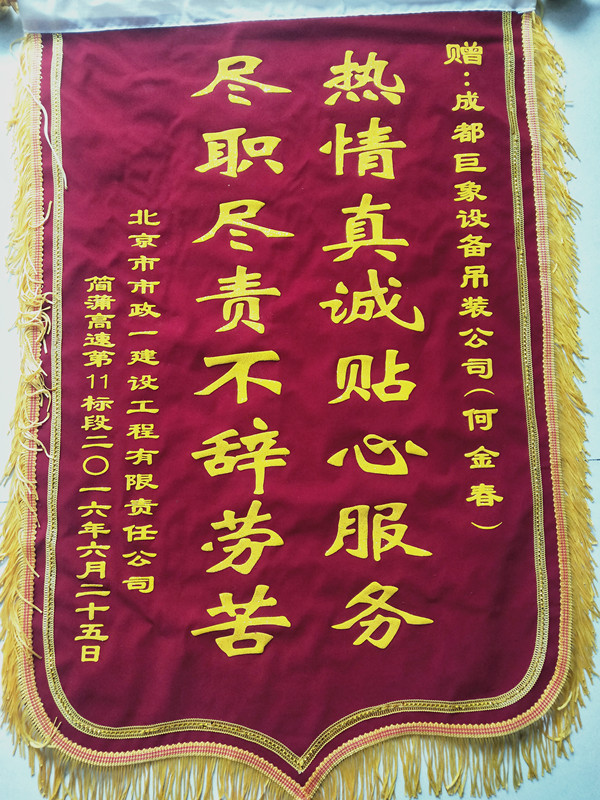 赠：成都巨象设备吊装公司（何金春）
热情真诚贴心服务
尽职尽责不辞劳苦
北京市市政一建设工程有限责任公司
简蒲高速第11标段二〇一六年六月二十五日